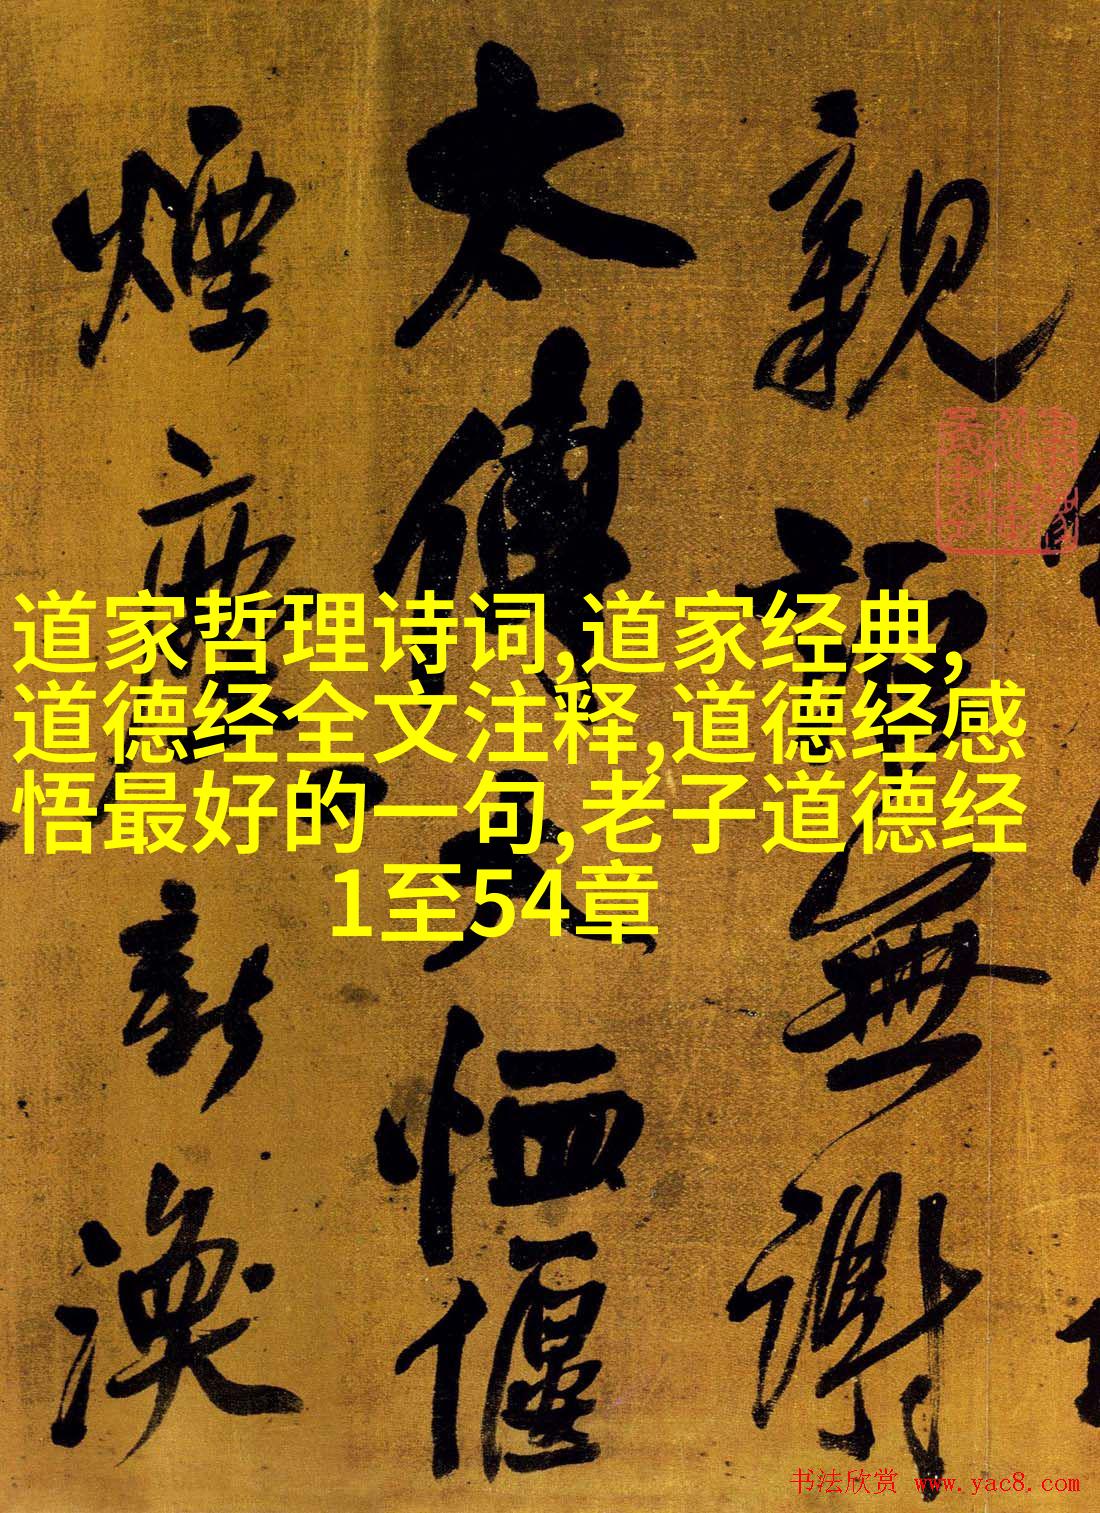 親無謝
太傅恤偃
煙新渙
道家哲理诗词,道家经典,
道德经全文注释,道德经感
悟最好的一句,老子道德经
1至54章
书法欣赏 www.yac8.com